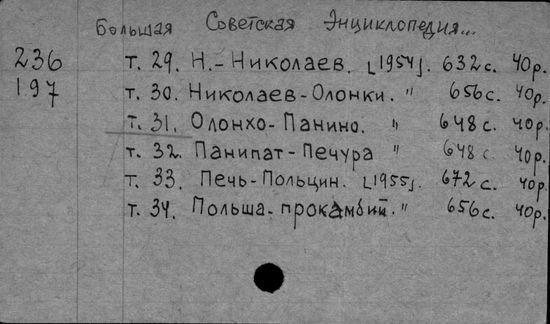 Большая Советская Энциклопедия...
236 т. 29. Н.-Николаев. [1954]. 632 с. 40р.
197 т. 30. Николаев-Олонки. " 656 с. 40р.
т. 31. Олонхо-Панино. " 648 с. 40р.
т. 32. Панипат-Печура " 648 с. 40р.
т. 33. Печь-Польцин. [1955]. 672 с. 40р.
т. 34. Польша-прокамбий. " 656 с. 40р.